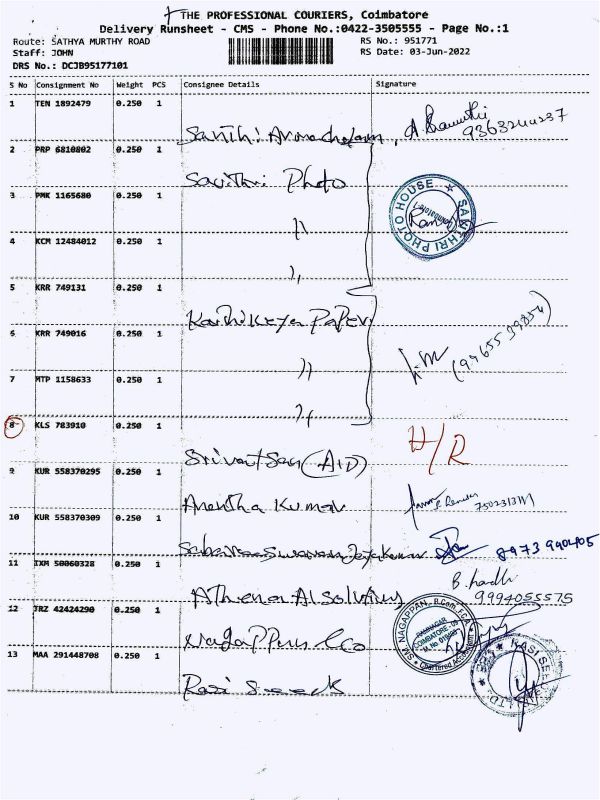 THE PROFESSIONAL COURIERS, Coimbatore
Delivery Runsheet - CMS - Phone No.:0422-3505555 - Page No.:1
Route: SATHYA MURTHY ROAD
Staff: JOHN
DRS No.: DCJB95177101
RS No.: 951771
RS Date: 03-Jun-2022
S No Consignment No Weight PCS Consignee Details Signature
1 TEN 1892479 0.250 1
9363244237
2 PRP 6810802 0.250 1
Savithri Photo
3 PMK 1165680 0.250 1
"
SAVITHRI PHOTO HOUSE
4 KCM 12484012 0.250 1
"
5 KRR 749131 0.250 1
Karthikeya Paper
6 KRR 749016 0.250 1
"
7 MTP 1158633 0.250 1
"
8 KLS 783910 0.250 1
Srivatsan (AID)
H/R
9 KUR 558370295 0.250 1
Anantha Kumar
10 KUR 558370309 0.250 1
8973990405
11 IXM 50060328 0.250 1
Athena AI solutions
9994055575
12 TRZ 42424290 0.250 1
Nagappan & co
SM. NAGAPPAN, B.Com, F.C.A
Chartered Accountant
13 MAA 291448708 0.250 1
Rasi Seeds
RASI SEEDS